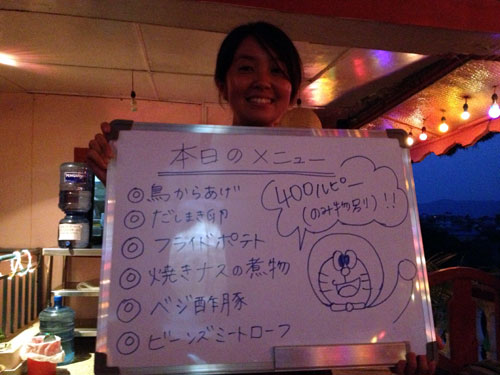 本日のメニュー
◎ 鳥からあげ
◎ だしまき卵
◎ フライドポテト
◎ 焼きナスの煮物
◎ ベジ酢豚
◎ ビーンズミートローフ
400ルピー
(のみ物別り)!!